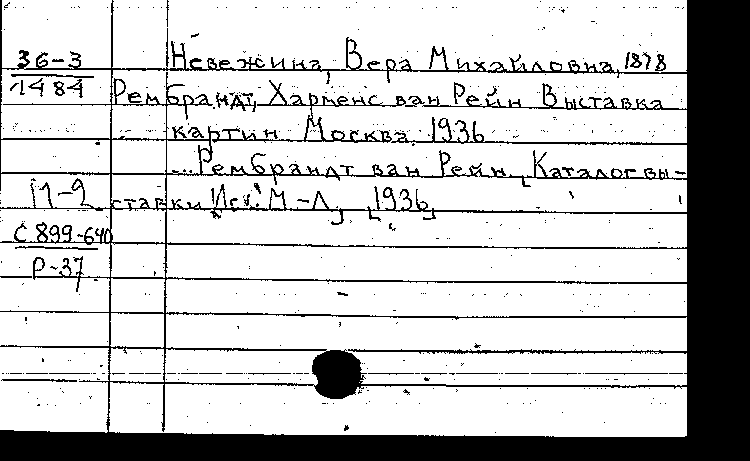 36-3
1484
Невежина, Вера Михайловна, 1878
Рембрандт, Харменс ван Рейн Выставка
картин Москва. 1936
...Рембрандт ван Рейн, [Каталог вы-
ставки Иск. М.-Л.] [1936]
П-2
С 899-640
Р-37